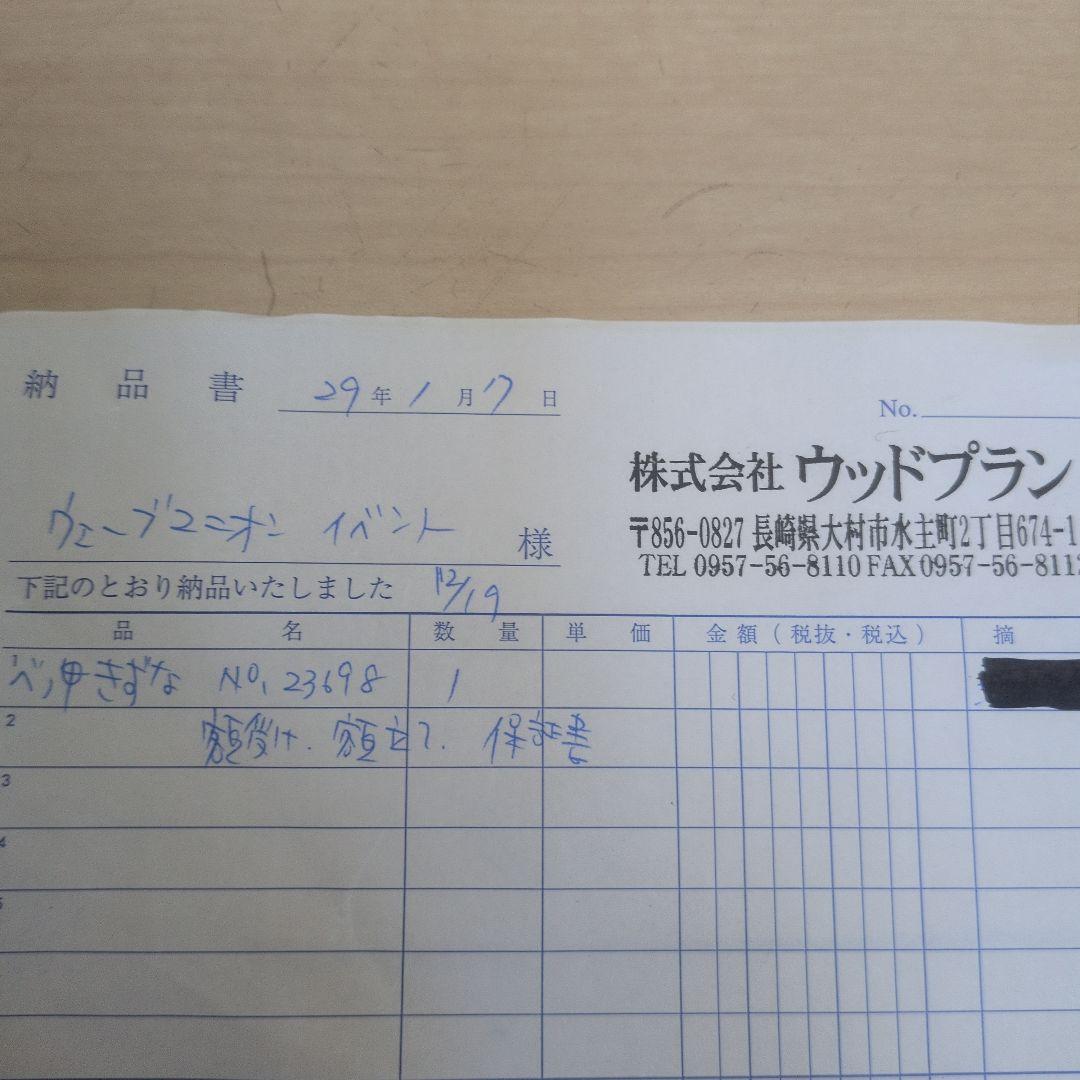 納品書 29年1月17日
No.
株式会社 ウッドプラン
〒856-0827 長崎県大村市水主町2丁目674-1
TEL 0957-56-8110 FAX 0957-56-8112
ウェーブユニオン イベント 様
下記のとおり納品いたしました 12/19
品名 数量 単価 金額(税抜・税込) 摘
1 べっ甲きずな No.23698 1
2 額受け. 額立て. 保証書
3
4
5